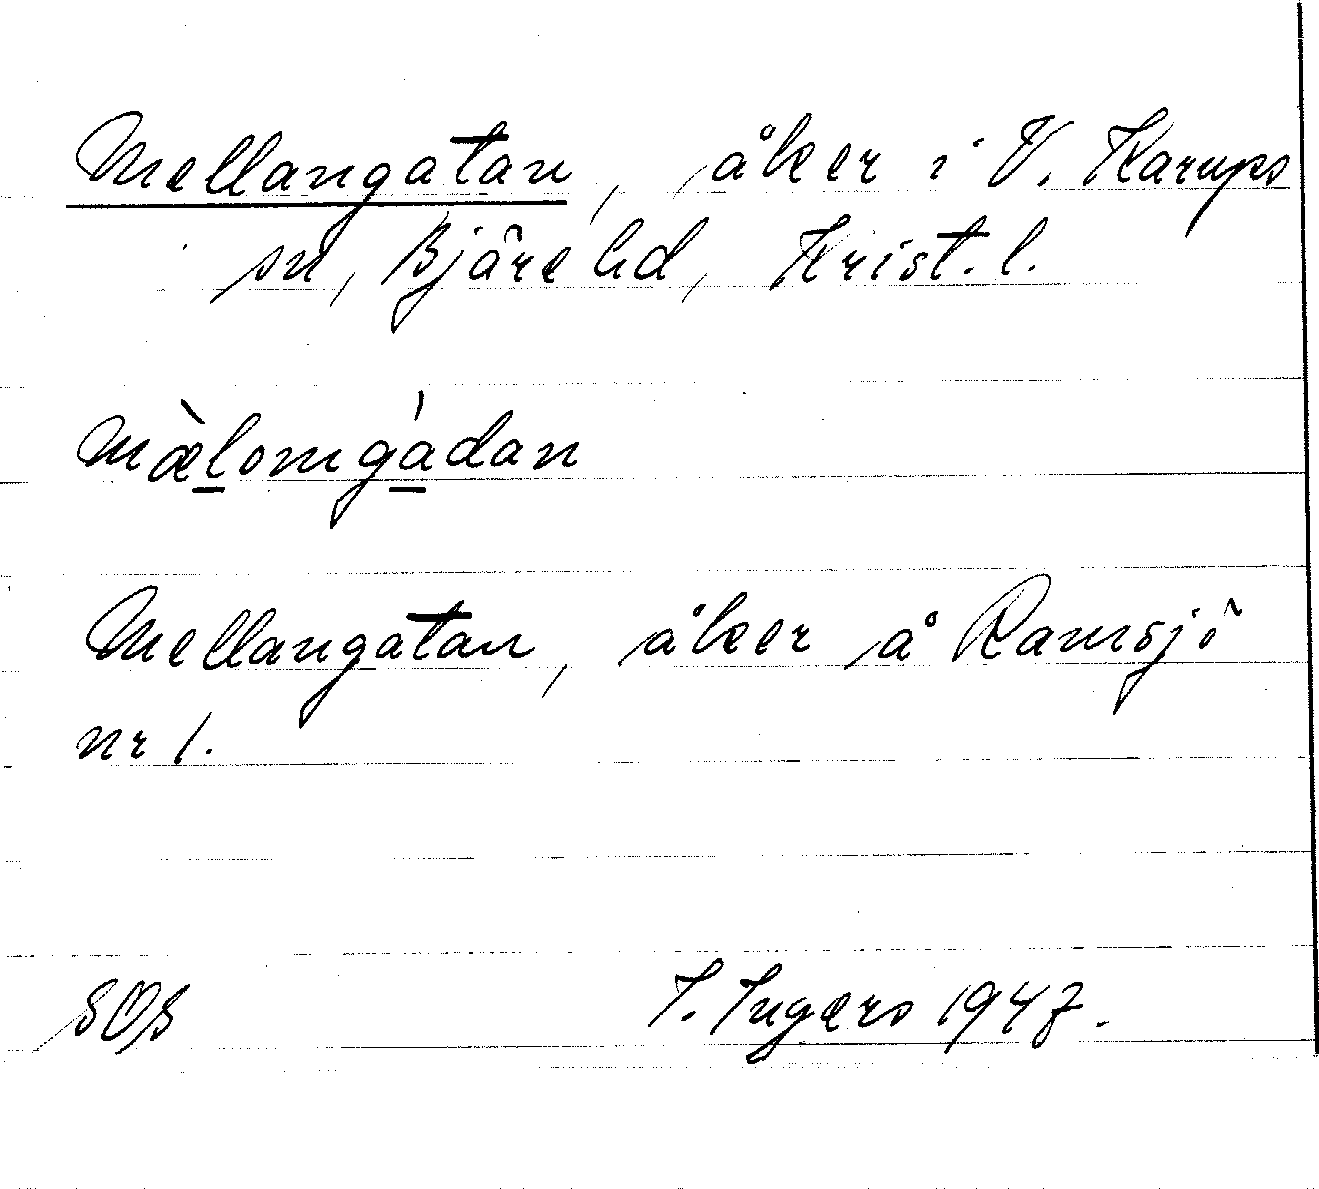 Mellangatan, åker i V. Karups
sn, Bjäre hd, Krist. l.
mæ̀l̲omgá̲dan
Mellangatan, åker å Ramsjö
nr 1.
SOS
I. Ingers 1947.